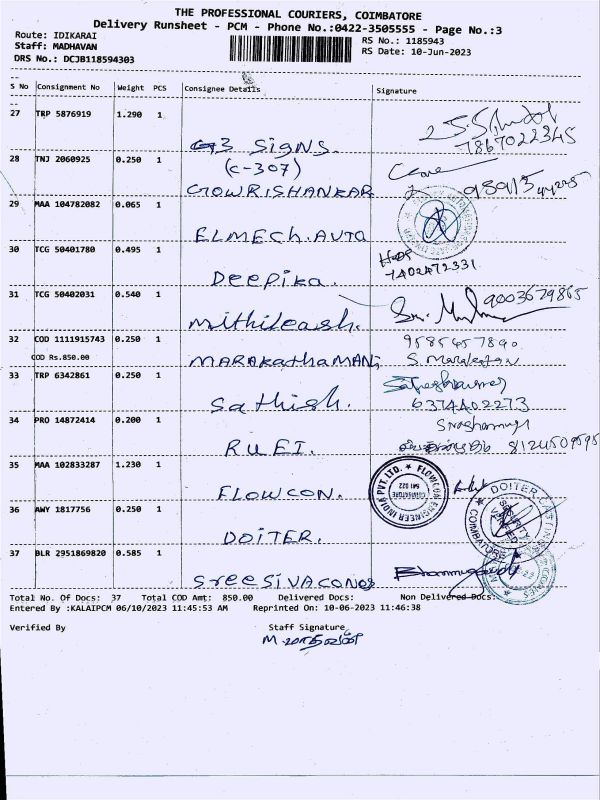 THE PROFESSIONAL COURIERS, COIMBATORE
Delivery Runsheet - PCM - Phone No.:0422-3505555 - Page No.:3
Route: IDIKARAI
RS No.: 1185943
Staff: MADHAVAN
RS Date: 10-Jun-2023
DRS No.: DCJB118594303
S No Consignment No Weight PCS Consignee Details Signature
27 TRP 5876919 1.290 1
G3 SIGNS.
7867022345
28 TNJ 2060925 0.250 1
(C-307)
GOWRISHANKAR
29 MAA 104782082 0.065 1
ELMECH.AUTO
30 TCG 50401780 0.495 1
7402472331
Deepika.
31 TCG 50402031 0.540 1
9003679865
Mithileash.
32 COD 1111915743 0.250 1
9585457890
COD Rs.850.00
MARAKAthAMANI
33 TRP 6342861 0.250 1
Sathish.
6374402273
34 PRO 14872414 0.200 1
RUEI.
35 MAA 102833287 1.230 1
FLOWCON ENGINEER INDIA PVT. LTD.
COIMBATORE
FLOWCON.
36 AWY 1817756 0.250 1
DOITER
SECURITY
COIMBATORE
DOITER.
37 BLR 2951869820 0.585 1
Sree SIVACONES
Total No. Of Docs: 37 Total COD Amt: 850.00 Delivered Docs: Non Delivered Docs:
Entered By :KALAIPCM 06/10/2023 11:45:53 AM Reprinted On: 10-06-2023 11:46:38
Verified By Staff Signature
M.மாதவன்